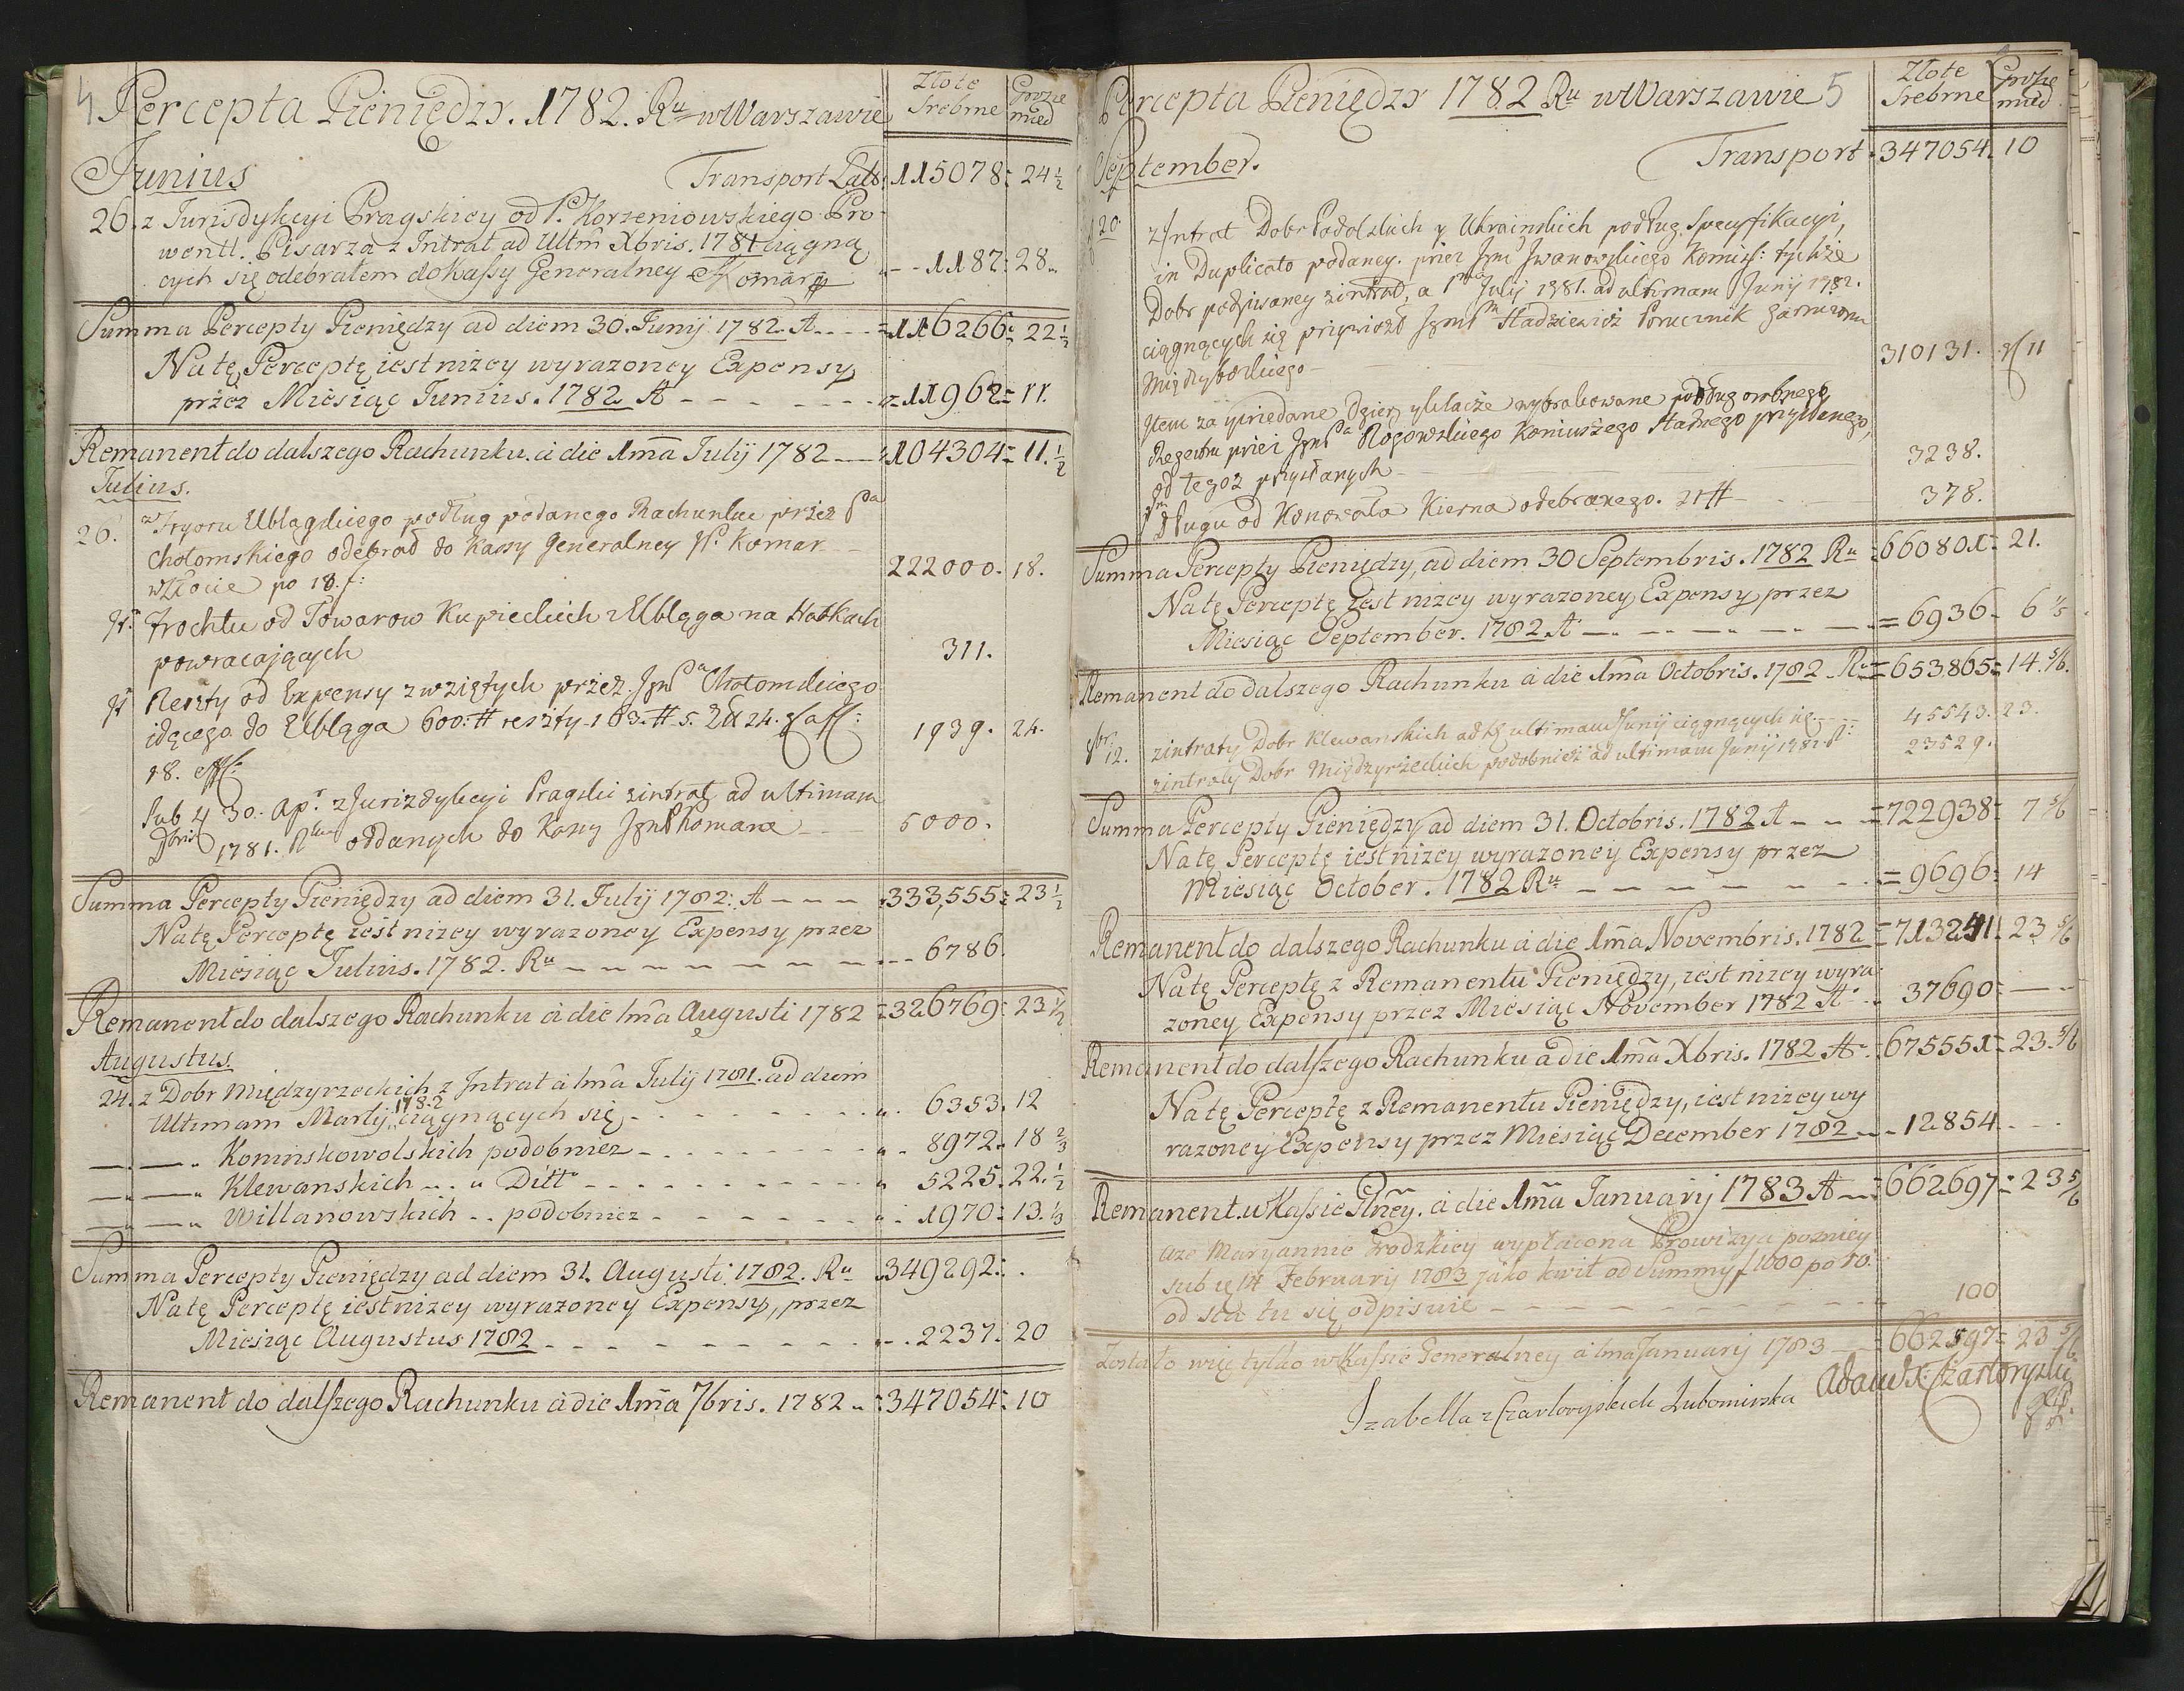 4 Percepta Pieniędzy. 1782. Ru w Warszawie Złote Srebrne Grosze mied
Junius Transport Lats: 115078: 24 1/2
26. z Jurisdykcyi Pragskiey od P. Korzeniowskiego Pro
wentt. Pisarza z Intrat ad Ultm̃ Xbris. 1781 ciągną
cych się odebrałem do Kassy Generalney Komar 1187: 28.
Summa Percepty Pieniędzy ad diem 30. Junij 1782. A 116266: 22 1/2
Na tę Perceptę iest niżey wyrazoney Expensy
przez Miesiąc Junius. 1782 A 11962: 11.
Remanent do dalszego Rachunku. à die 1mã Julij 1782 104304: 11. 1/2
Julius.
26. z Fryoru Elblągskiego podług podanego Rachunku przez Pa
Chotomskiego odebrał do Kassy Generalney P. Komar
w Złocie po 18. f: 222000. 18.
It: Frochtu od Towarow Kupieckich z Elbląga na Hatkach
powracaiących 311.
It Reszty od Expensy zwziętych przez JgmPa Chotomskiego
idącego do Elbląga 600: # reszty 103. # 5. Zł 24.
18. 1939. 24.
Sub 4 30. Apr. z Jurizdykcyi Pragski zintrat ad ultimam
Xbris 1781. Ru oddanych do Kassy JgmP Komara 5000.
Summa Percepty Pieniędzy ad diem 31. Julij 1782: A 333,555: 23 1/2
Na tę Perceptę iest niżey wyrazoney Expensy przez
Miesiąc Julius. 1782. Ru 6786.
Remanent do dalszego Rachunku à die 1mã Augusti 1782 326769: 23 1/2
Augustus.
24. z Dobr Międzyrzeckich z Intrat à 1mã Julij 1781. ad diem
Ultimam Martij 1782 ciągnących się 6353. 12
Koninskowolskich podobniez 8972. 18 2/3
Klewanskich Ditto 5225. 22. 1/2
Willanowskich podobniez 1970: 13. 1/3
Summa Percepty Pieniędzy ad diem 31. Augusti. 1782. Ru 349292:
Na tę Perceptę iest niżey wyrazoney Expensy, przez
Miesiąc Augustus 1782 2237. 20
Remanent do dalszego Rachunku à die 1mã 7bris. 1782 347054: 10
Percepta Pieniędzy 1782 Ru w Warszawie 5 Złote Srebrne Grosze mied
September. Transport 347054. 10
20 z Intrat Dobr Podolskich y Ukrainskich podług Specyfikacyi,
in Duplicato podaney. przez Jgm Jwanowskiego Komiss: tychże
Dobr podpisaney zintrat, a 1ma Julij 1781. ad ultimam Junij 1782.
ciągnących się przywiozł JgmPn Hadziewicz Porucznik Garnizonu
Międzyborskiego 310131. 11
Item za przedane Dzier y Klacze wybrakowane podług osobnego
Regestru przez JgmPa Rogowskiego Koniuszego Stadnego przysłanego,
od tegoż przysłanych 3238.
Długu od Konowała Kierna odebranego. 21 # 378.
Summa Percepty Pieniędzy, ad diem 30 Septembris. 1782 Ru 660801: 21.
Na tę Perceptę iest niżey wyrazoney Expensy przez
Miesiąc September. 1782 A 6936. 6 1/5
Remanent do dalszego Rachunku à die 1mã Octobris. 1782 Ru 653865: 14. 5/6.
8br 12. zintraty Dobr Klewanskich ad ultimam Junij ciągnących się. 45543. 23.
zintraty Dobr Międzyrzeckich podobnież ad ultimam Junij 1782. 23529.
Summa Percepty Pieniędzy ad diem 31. Octobris. 1782 A 722938: 7 5/6
Na tę Perceptę iest niżey wyrazoney Expensy przez
Miesiąc October. 1782 Ru 9696: 14
Remanent do dalszego Rachunku à die 1mã Novembris. 1782 713241: 23 5/6
Na tę Perceptę z Remanentu Pieniędzy, iest niżey wyra
zoney Expensy przez Miesiąc November 1782 A 37690:
Remanent do dalszego Rachunku à die 1mã Xbris. 1782 A 675551: 23 5/6
Na tę Perceptę z Remanentu Pieniędzy, iest niżey wy
razoney Expensy przez Miesiąc December 1782 12854.
Remanent. w Kassie Glney. à die 1mã Januarij 1783 A 662697: 23 5/6
aze Maryannie Grodzkiey wypłacona Prowizya pozniey
sub 14 Februarij 1783 jako kwit od Summy f 1000 po 10.
od sta tu się odpisuie 100
Zostało więc tylko w Kassie Generalney à 1mã Januarij 1783 662597: 23 5/6
Izabella z Czartoryskich Lubomirska Adam X Czartoryski